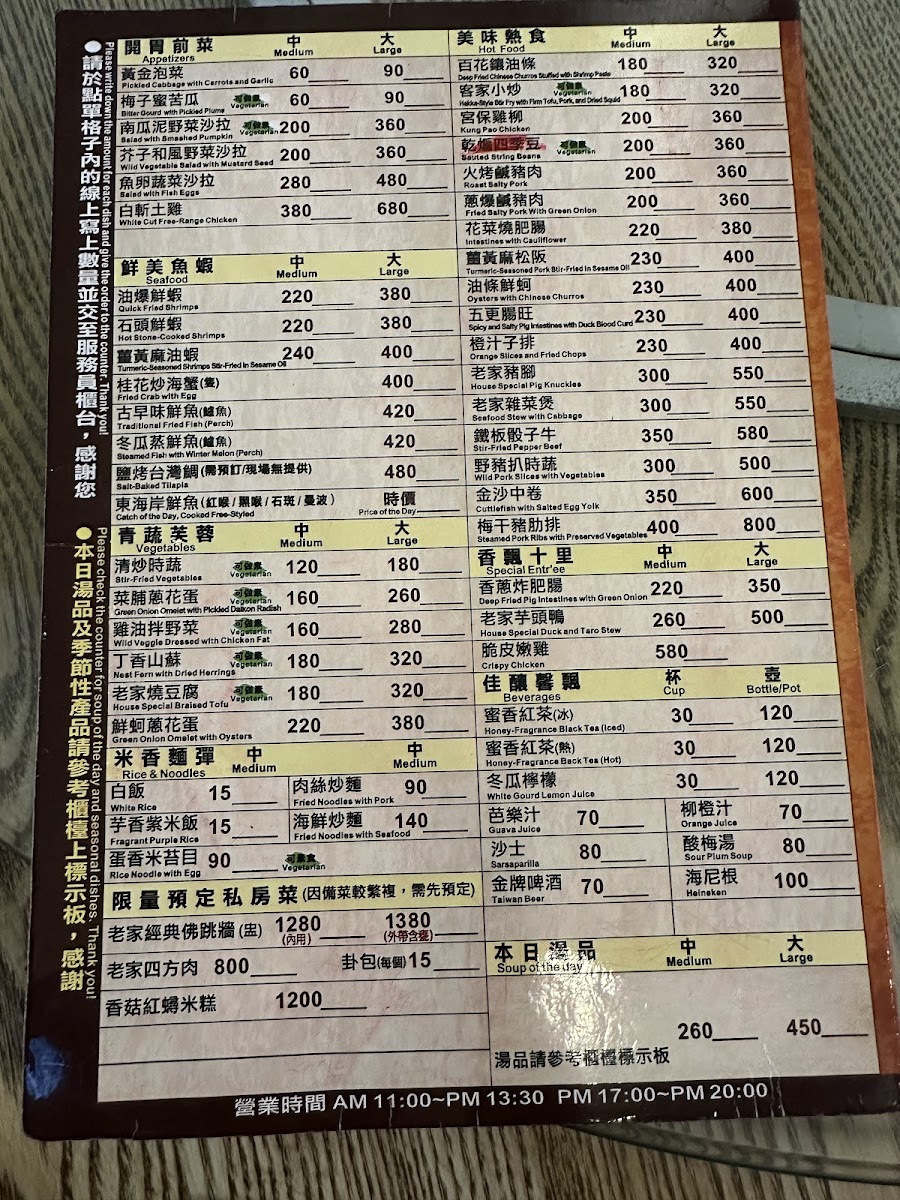 ●請於點單格子內的線上寫上數量並交至服務員櫃台，感謝您
Please write down the amount for each dish and give the order to the counter. Thank you!
●本日湯品及季節性產品請參考櫃檯上標示板，感謝
Please check the counter for soup of the day and seasonal dishes. Thank you!
開胃前菜 中 大
Appetizers Medium Large
黃金泡菜 60 90
Pickled Cabbage with Carrots and Garlic
梅子蜜苦瓜 可做素 60 90
Bitter Gourd with Pickled Plums Vegetarian
南瓜泥野菜沙拉 可做素 200 360
Salad with Smashed Pumpkin Vegetarian
芥子和風野菜沙拉 200 360
Wild Vegetable Salad with Mustard Seed
魚卵蔬菜沙拉 280 480
Salad with Fish Eggs
白斬土雞 380 680
White Cut Free-Range Chicken
鮮美魚蝦 中 大
Seafood Medium Large
油爆鮮蝦 220 380
Quick Fried Shrimps
石頭鮮蝦 220 380
Hot Stone-Cooked Shrimps
薑黃麻油蝦 240 400
Turmeric-Seasoned Shrimps Stir-Fried in Sesame Oil
桂花炒海蟹(隻) 400
Fried Crab with Egg
古早味鮮魚(鱸魚) 420
Traditional Fried Fish (Perch)
冬瓜蒸鮮魚(鱸魚) 420
Steamed Fish with Winter Melon (Perch)
鹽烤台灣鯛(需預訂/現場無提供) 480
Salt-Baked Tilapia
東海岸鮮魚(紅喉/黑喉/石斑/曼波) 時價
Catch of the Day, Cooked Free-Styled Price of the Day
青蔬芙蓉 中 大
Vegetables Medium Large
清炒時蔬 可做素 120 180
Stir-Fried Vegetables Vegetarian
菜脯蔥花蛋 可做素 160 260
Green Onion Omelet with Pickled Daikon Radish Vegetarian
雞油拌野菜 可做素 160 280
Wild Veggie Dressed with Chicken Fat Vegetarian
丁香山蘇 可做素 180 320
Nest Fern with Dried Herrings Vegetarian
老家燒豆腐 可做素 180 320
House Special Braised Tofu Vegetarian
鮮蚵蔥花蛋 220 380
Green Onion Omelet with Oysters
米香麵彈 中 中
Rice & Noodles Medium Medium
白飯 15 肉絲炒麵 90
White Rice Fried Noodles with Pork
芋香紫米飯 15 海鮮炒麵 140
Fragrant Purple Rice Fried Noodles with Seafood
蛋香米苔目 90 可素食
Rice Noodle with Egg Vegetarian
限量預定私房菜(因備菜較繁複，需先預定)
老家經典佛跳牆(盅) 1280 1380
(內用) (外帶含甕)
老家四方肉 800 卦包(每個) 15
香菇紅蟳米糕 1200
美味熱食 中 大
Hot Food Medium Large
百花鑲油條 180 320
Deep Fried Chinese Churros Stuffed with Shrimp Paste
客家小炒 可做素 180 320
Hakka-Style Stir Fry with Firm Tofu, Pork, and Dried Squid Vegetarian
宮保雞柳 200 360
Kung Pao Chicken
乾煸四季豆 可做素 200 360
Sauted String Beans Vegetarian
火烤鹹豬肉 200 360
Roast Salty Pork
蔥爆鹹豬肉 200 360
Fried Salty Pork With Green Onion
花菜燒肥腸 220 380
Intestines with Cauliflower
薑黃麻松阪 230 400
Turmeric-Seasoned Pork Stir-Fried in Sesame Oil
油條鮮蚵 230 400
Oysters with Chinese Churros
五更腸旺 230 400
Spicy and Salty Pig Intestines with Duck Blood Curd
橙汁子排 230 400
Orange Slices and Fried Chops
老家豬腳 300 550
House Special Pig Knuckles
老家雜菜煲 300 550
Seafood Stew with Cabbage
鐵板骰子牛 350 580
Stir-Fried Pepper Beef
野豬扒時蔬 300 500
Wild Pork Slices with Vegetables
金沙中卷 350 600
Cuttlefish with Salted Egg Yolk
梅干豬肋排 400 800
Steamed Pork Ribs with Preserved Vegetables
香飄十里 中 大
Special Entr'ee Medium Large
香蔥炸肥腸 220 350
Deep Fried Pig Intestines with Green Onion
老家芋頭鴨 260 500
House Special Duck and Taro Stew
脆皮嫩雞 580
Crispy Chicken
佳釀馨飄 杯 壺
Beverages Cup Bottle/Pot
蜜香紅茶(冰) 30 120
Honey-Fragrance Black Tea (Iced)
蜜香紅茶(熱) 30 120
Honey-Fragrance Back Tea (Hot)
冬瓜檸檬 30 120
White Gourd Lemon Juice
芭樂汁 70 柳橙汁 70
Guava Juice Orange Juice
沙士 80 酸梅湯 80
Sarsaparilla Sour Plum Soup
金牌啤酒 70 海尼根 100
Taiwan Beer Heineken
本日湯品 中 大
Soup of the day Medium Large
260 450
湯品請參考櫃檯標示板
營業時間 AM 11:00~PM 13:30 PM 17:00~PM 20:00